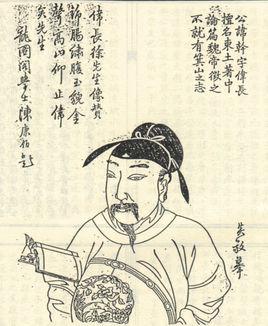 公諱幹字偉長
擅名東土著中
論篇魏帝徵之
不就有箕山之志
偉長徐先生像贊
錦腸繡腹玉貌金
聲高山仰止偉
矣先生
龍圖閣學士陳康伯題
敬摹